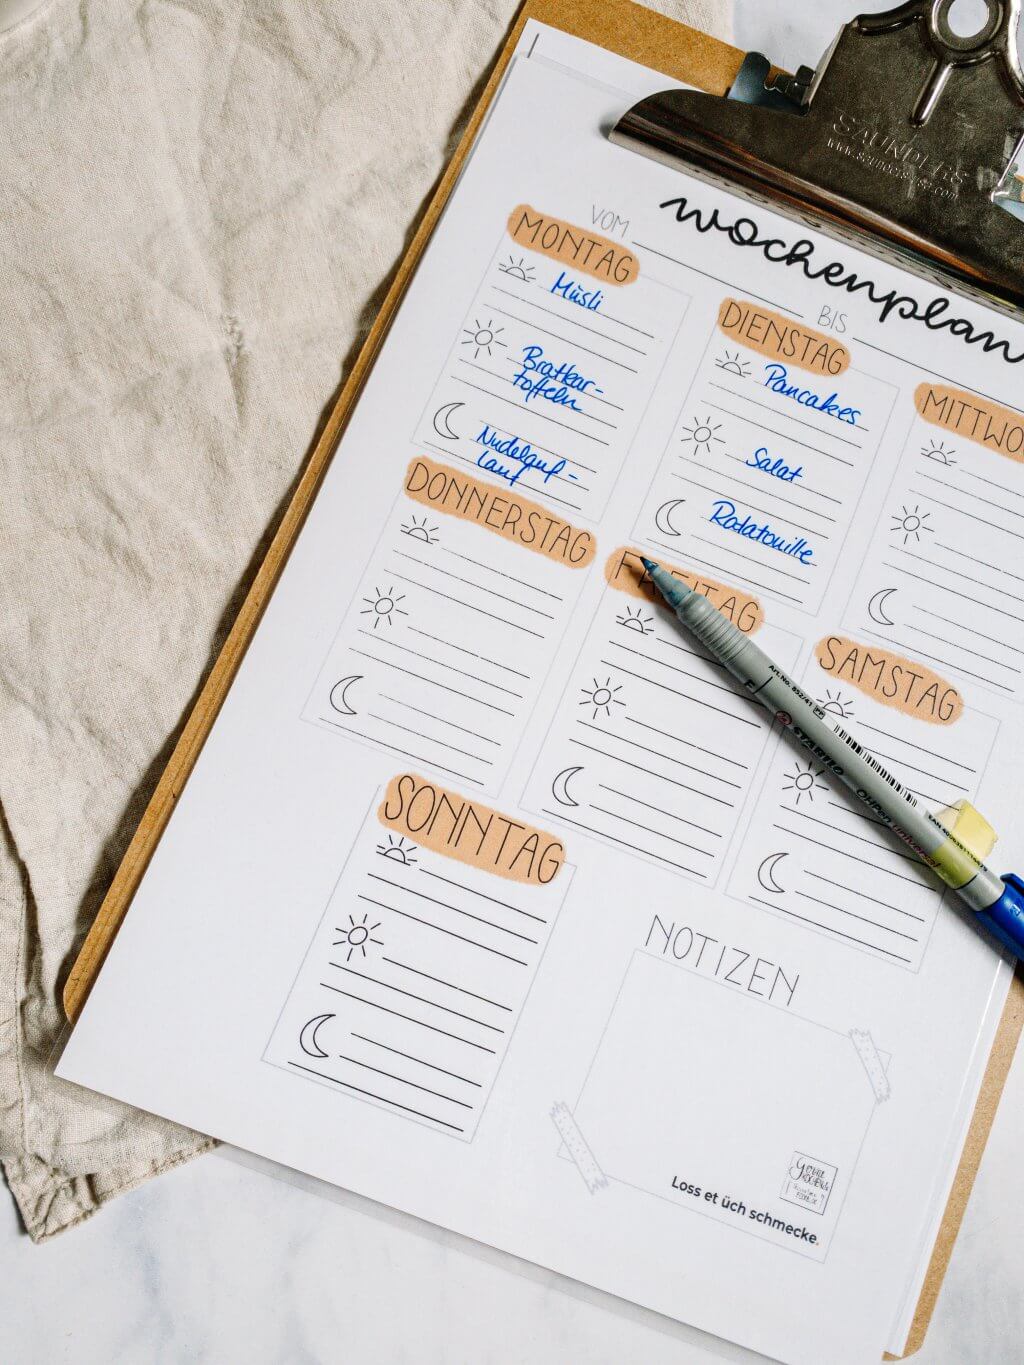 SAUNDERS
wochenplan
VOM
BIS
MONTAG
Müsli
Bratkar-
toffeln
Nudelauf-
lauf
DIENSTAG
Pancakes
Salat
Ratatouille
MITTWO
DONNERSTAG
FREITAG
SAMSTAG
SONNTAG
NOTIZEN
Loss et üch schmecke.
F
Art.No. 852/41
STABILO
OHPen universal